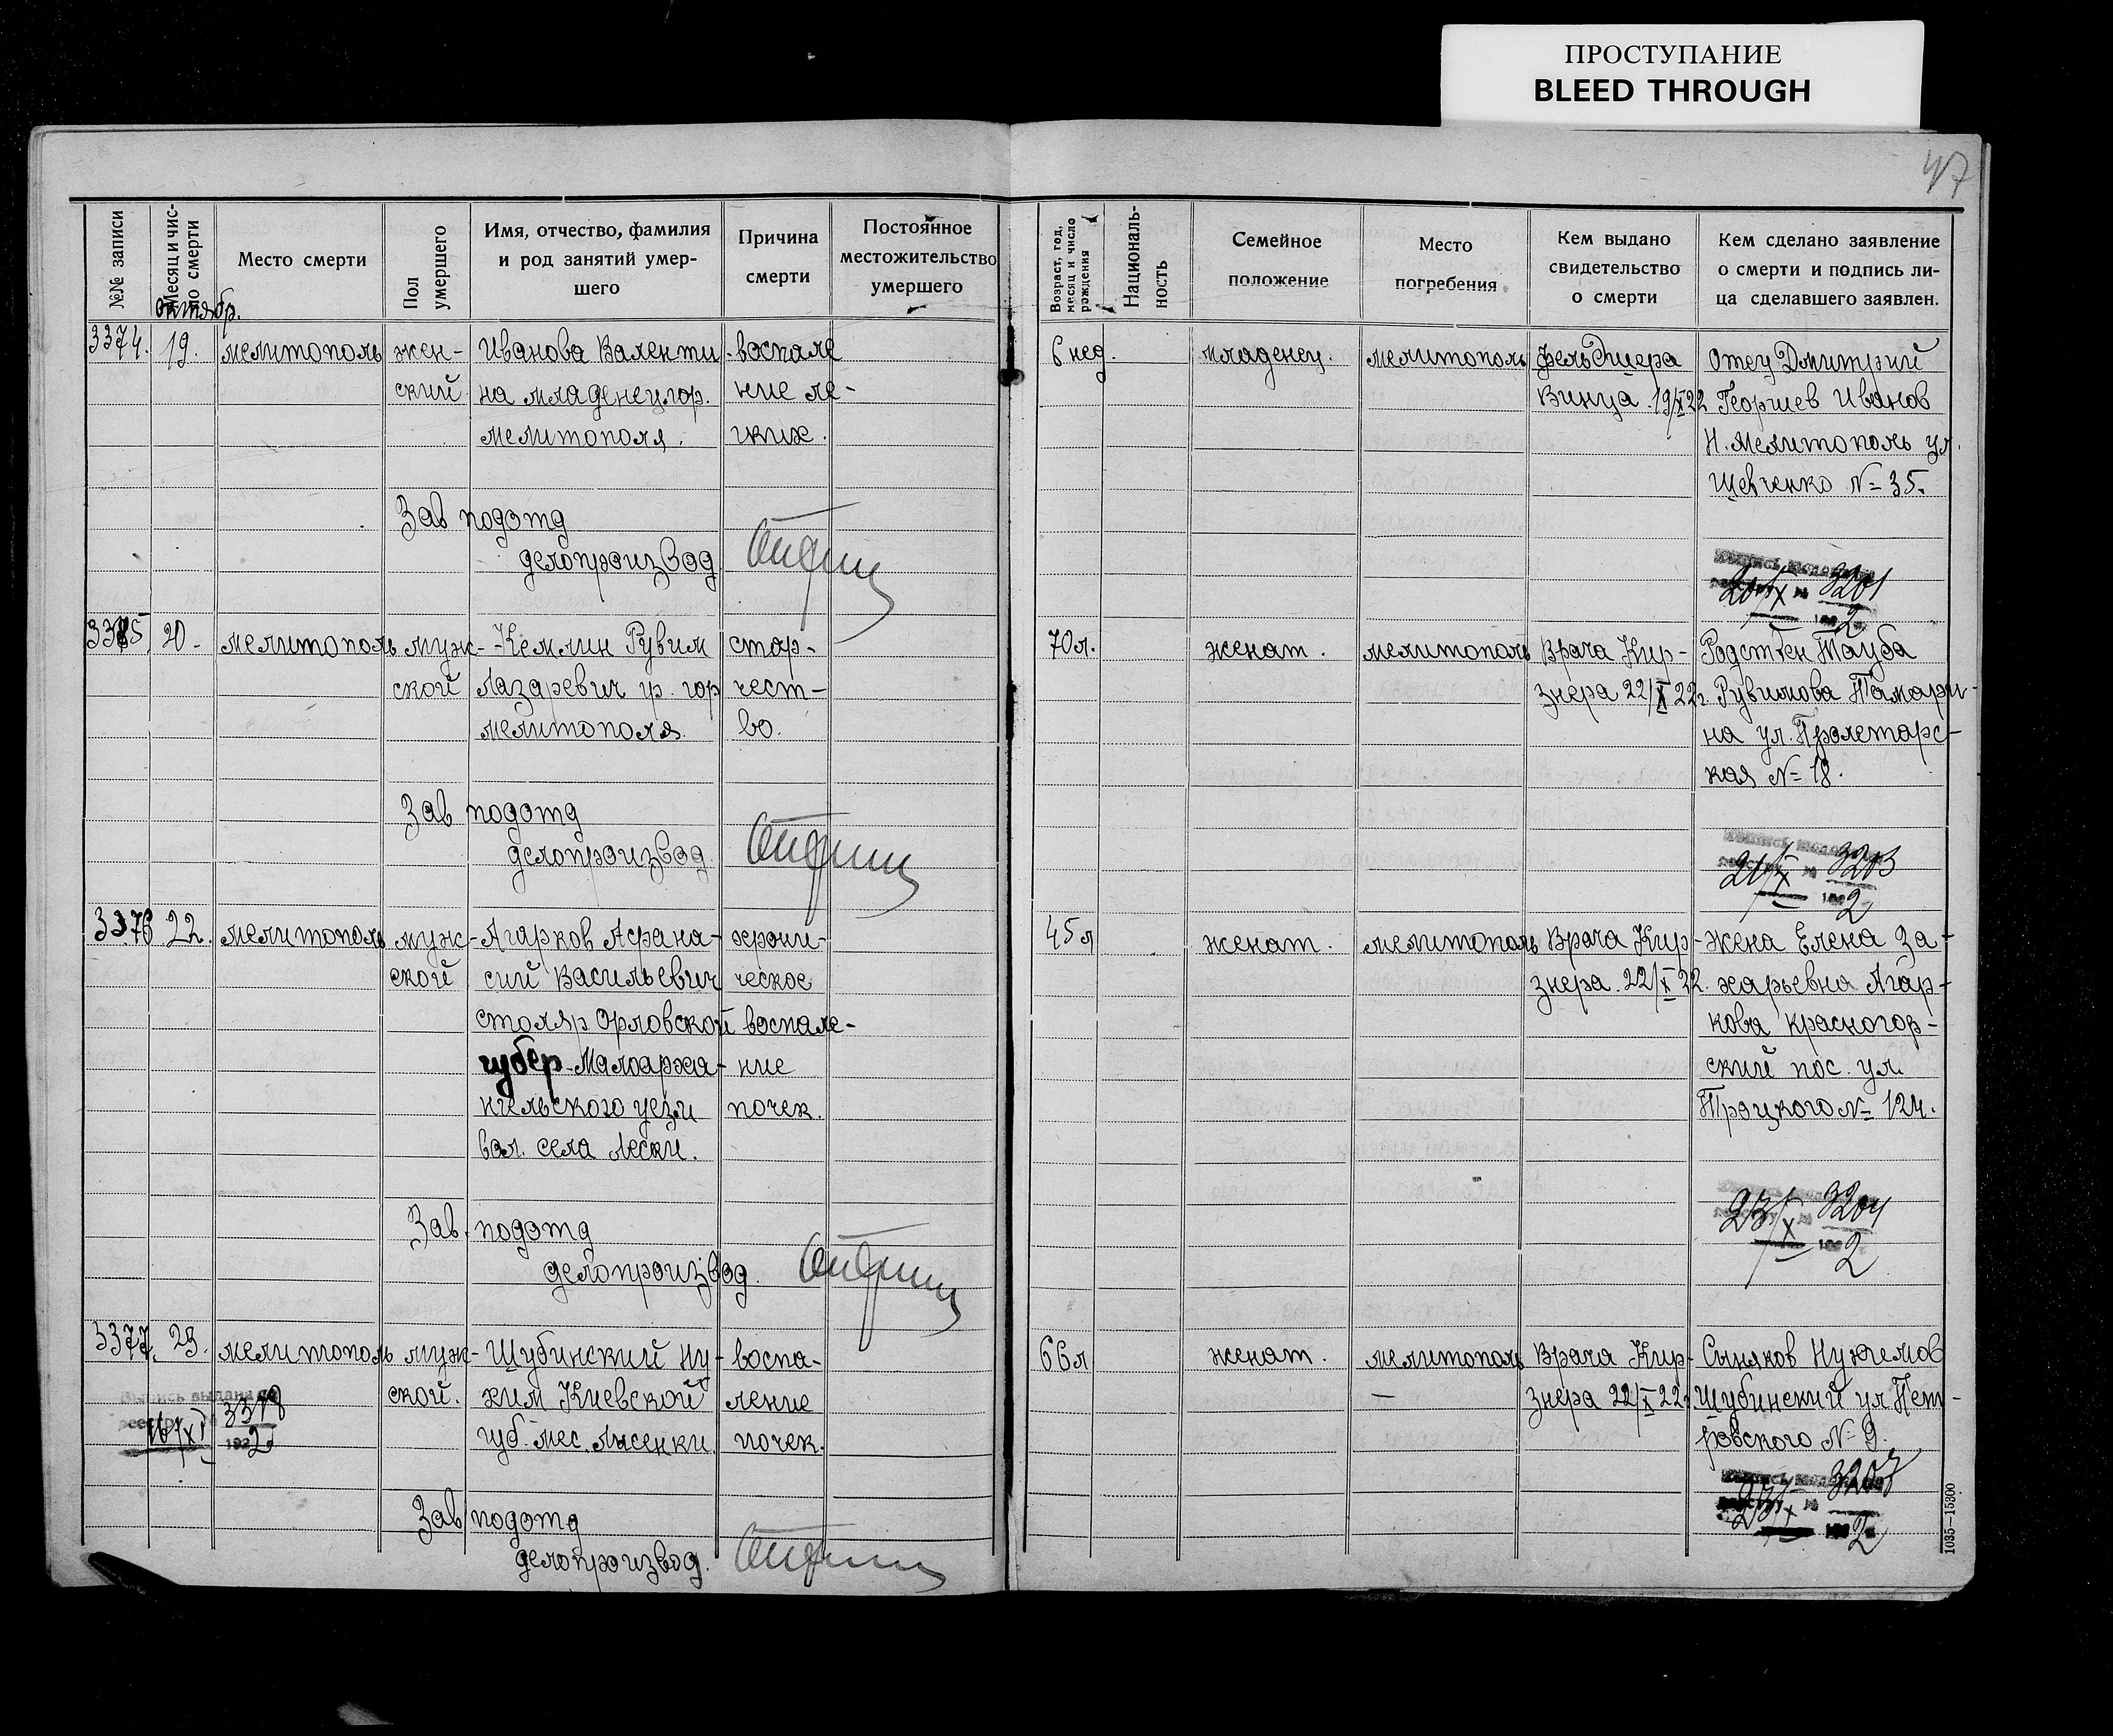 ПРОСТУПАНИЕ
BLEED THROUGH
47
№№ записи
Месяц и чис-
ло смерти
Место смерти
Пол
умершего
Имя, отчество, фамилия
и род занятий умер-
шего
Причина
смерти
Постоянное
местожительство
умершего
Возраст, год,
месяц и число
рождения
Националь-
ность
Семейное
положение
Место
погребения
Кем выдано
свидетельство
о смерти
Кем сделано заявление
о смерти и подпись ли-
ца сделавшего заявлен.
октябр.
3374.
19.
мелитополь
жен-
ский
Иванова Валенти
на младенец гор.
мелитополя.
воспале
ние ле-
гких.
6 нед.
младенец.
мелитополь
фельдшера
Винца. 19/X 22
отец Дмитрий
Георгиев Иванов
Н. Мелитополь ул.
Шевченко № 35.
Зав подотд
делопроизвод
20/X 3201
2
3375
20-
мелитополь
муж-
ской
Кемлин Рувим
Лазаревич гр. гор
мелитополя.
стар-
чест-
во.
70 л.
женат.
мелитополь
Врача Кир-
знера 22/X 22г.
Родствен Тауба
Рувимова Тамари-
на ул. Пролетарс-
кая № 18.
Зав подотд
делопроизвод.
21/X 3203
2
3376
22.
мелитополь
муж-
ской
Агарков Афана-
сий Васильевич
столяр Орловской
губер. Малоарха-
нгельского уез. и
вол. села Лески.
хрони-
ческое
воспале-
ние
почек.
45 л
женат.
мелитополь
Врача Кир-
знера. 22/X 22.
жена Елена За-
харьевна Агар-
кова Красногор-
ский пос. ул.
Троцкого № 124.
Зав. подотд
делопроизвод.
23/X 3204
2
3377.
23.
мелитополь
муж-
ской.
Шубинский Ну-
хим Киевской
губ. мес. Лысенки.
воспа-
ление
почек.
66 л
женат.
мелитополь
—
Врача Кир-
знера 22/X 22г.
Сыняков Нухимов
Шубинский ул Пет-
ровского № 9.
выпись выдана по
реестру
16/XI 3318
192 2
Зав подотд
делопроизвод.
23/X 3207
2
1035—15300